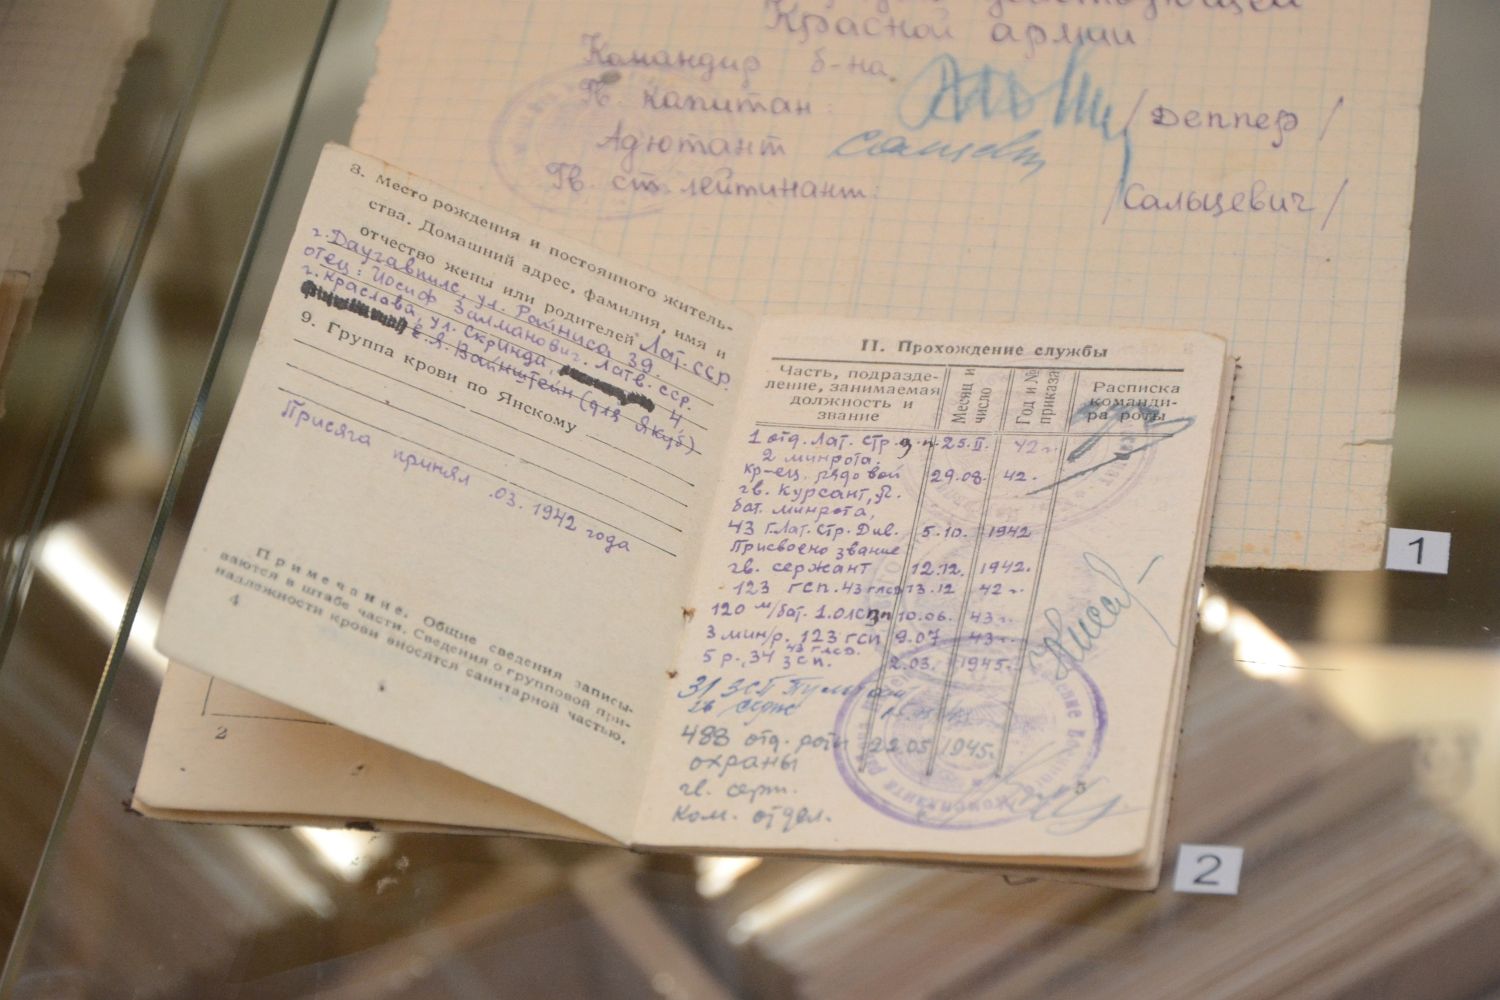 Красной армии
Командир б-на
Гв. капитан: /Деппер/
Адютант
Гв. ст. лейтинант: /Сальцевич/
8. Место рождения и постоянного житель-
ства. Домашний адрес, фамилия, имя и
отчество жены или родителей Лат. ССР
г. Даугавпилс, ул. Райниса 39.
отец: Иосиф Залманович. Латв. ССР.
г. Краслава, ул. Скринда, 4
Е. Я. Вайнштейн (для Якуб)
9. Группа крови по Янскому
Присяга принял .03. 1942 года
Примечание. Общие сведения записы-
ваются в штабе части. Сведения о групповой при-
надлежности крови вносятся санитарной частью.
4
2
II. Прохождение службы
Часть, подразде-
ление, занимаемая
должность и
звание
Месяц и
число
Год и №
приказа
Расписка
команди-
ра роты
1 отд. Лат. стр. п. 25.II. 42 г.
2 минрота.
кр-ец. рядовой 29.08. 42.
гв. Курсант,
бат. минрота,
43 г. Лат. Стр. Див. 5.10. 1942
Присвоено звание
гв. сержант 12.12. 1942.
123 гсп. 43 глсд 13.12 42 г.
120 м/бат. 1.олсзп 10.06. 43 г.
3 мин/р. 123 гсп 9.07 43 г.
43 глсд.
5 р., 34 зсп. 2.03. 1945 г.
31 ЗСП
гв. серж
488 отд. роты 22.05 1945 г.
охраны
гв. серж.
ком. отдел.
5
1
2